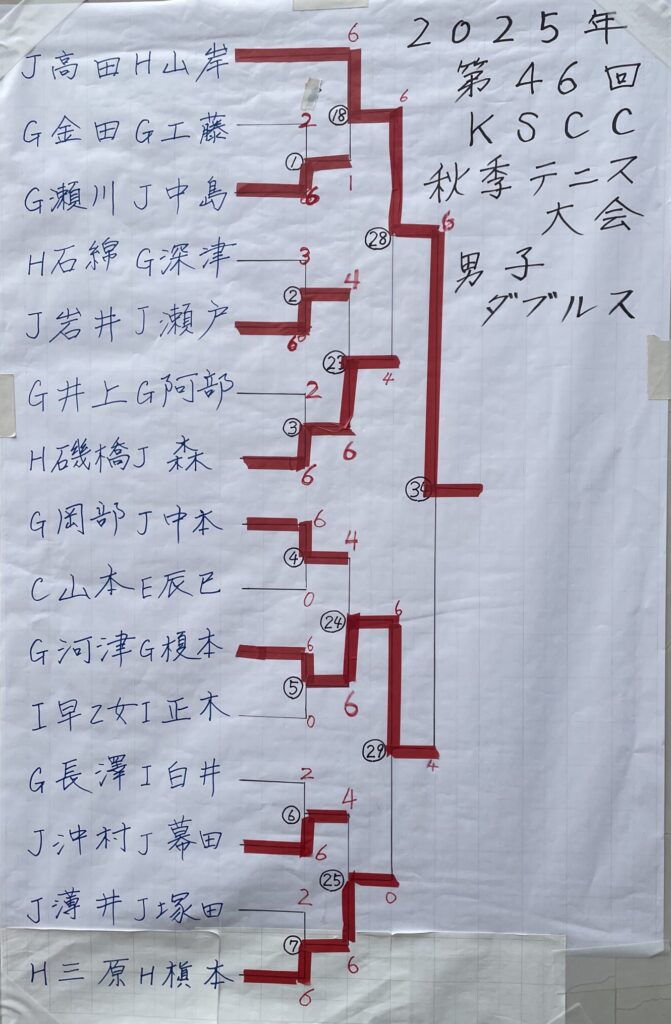 2025年
第46回
KSCC
秋季テニス
大会
男子
ダブルス
6
J高田H山岸
6
⑱
G金田G工藤
2
①
G瀬川J中島
6
1
6
㉘
H石綿G深津
3
②
4
J岩井J瀬戸
6
㉓
4
G井上G阿部
2
③
H磯橋J森
6
6
㉞
G岡部J中本
6
④
4
C山本E辰巳
0
㉔
6
G河津G榎本
6
⑤
6
I早乙女I正木
0
㉙
4
G長澤I白井
2
⑥
4
J沖村J幕田
6
㉕
0
J薄井J塚田
2
⑦
6
H三原H槇本
6